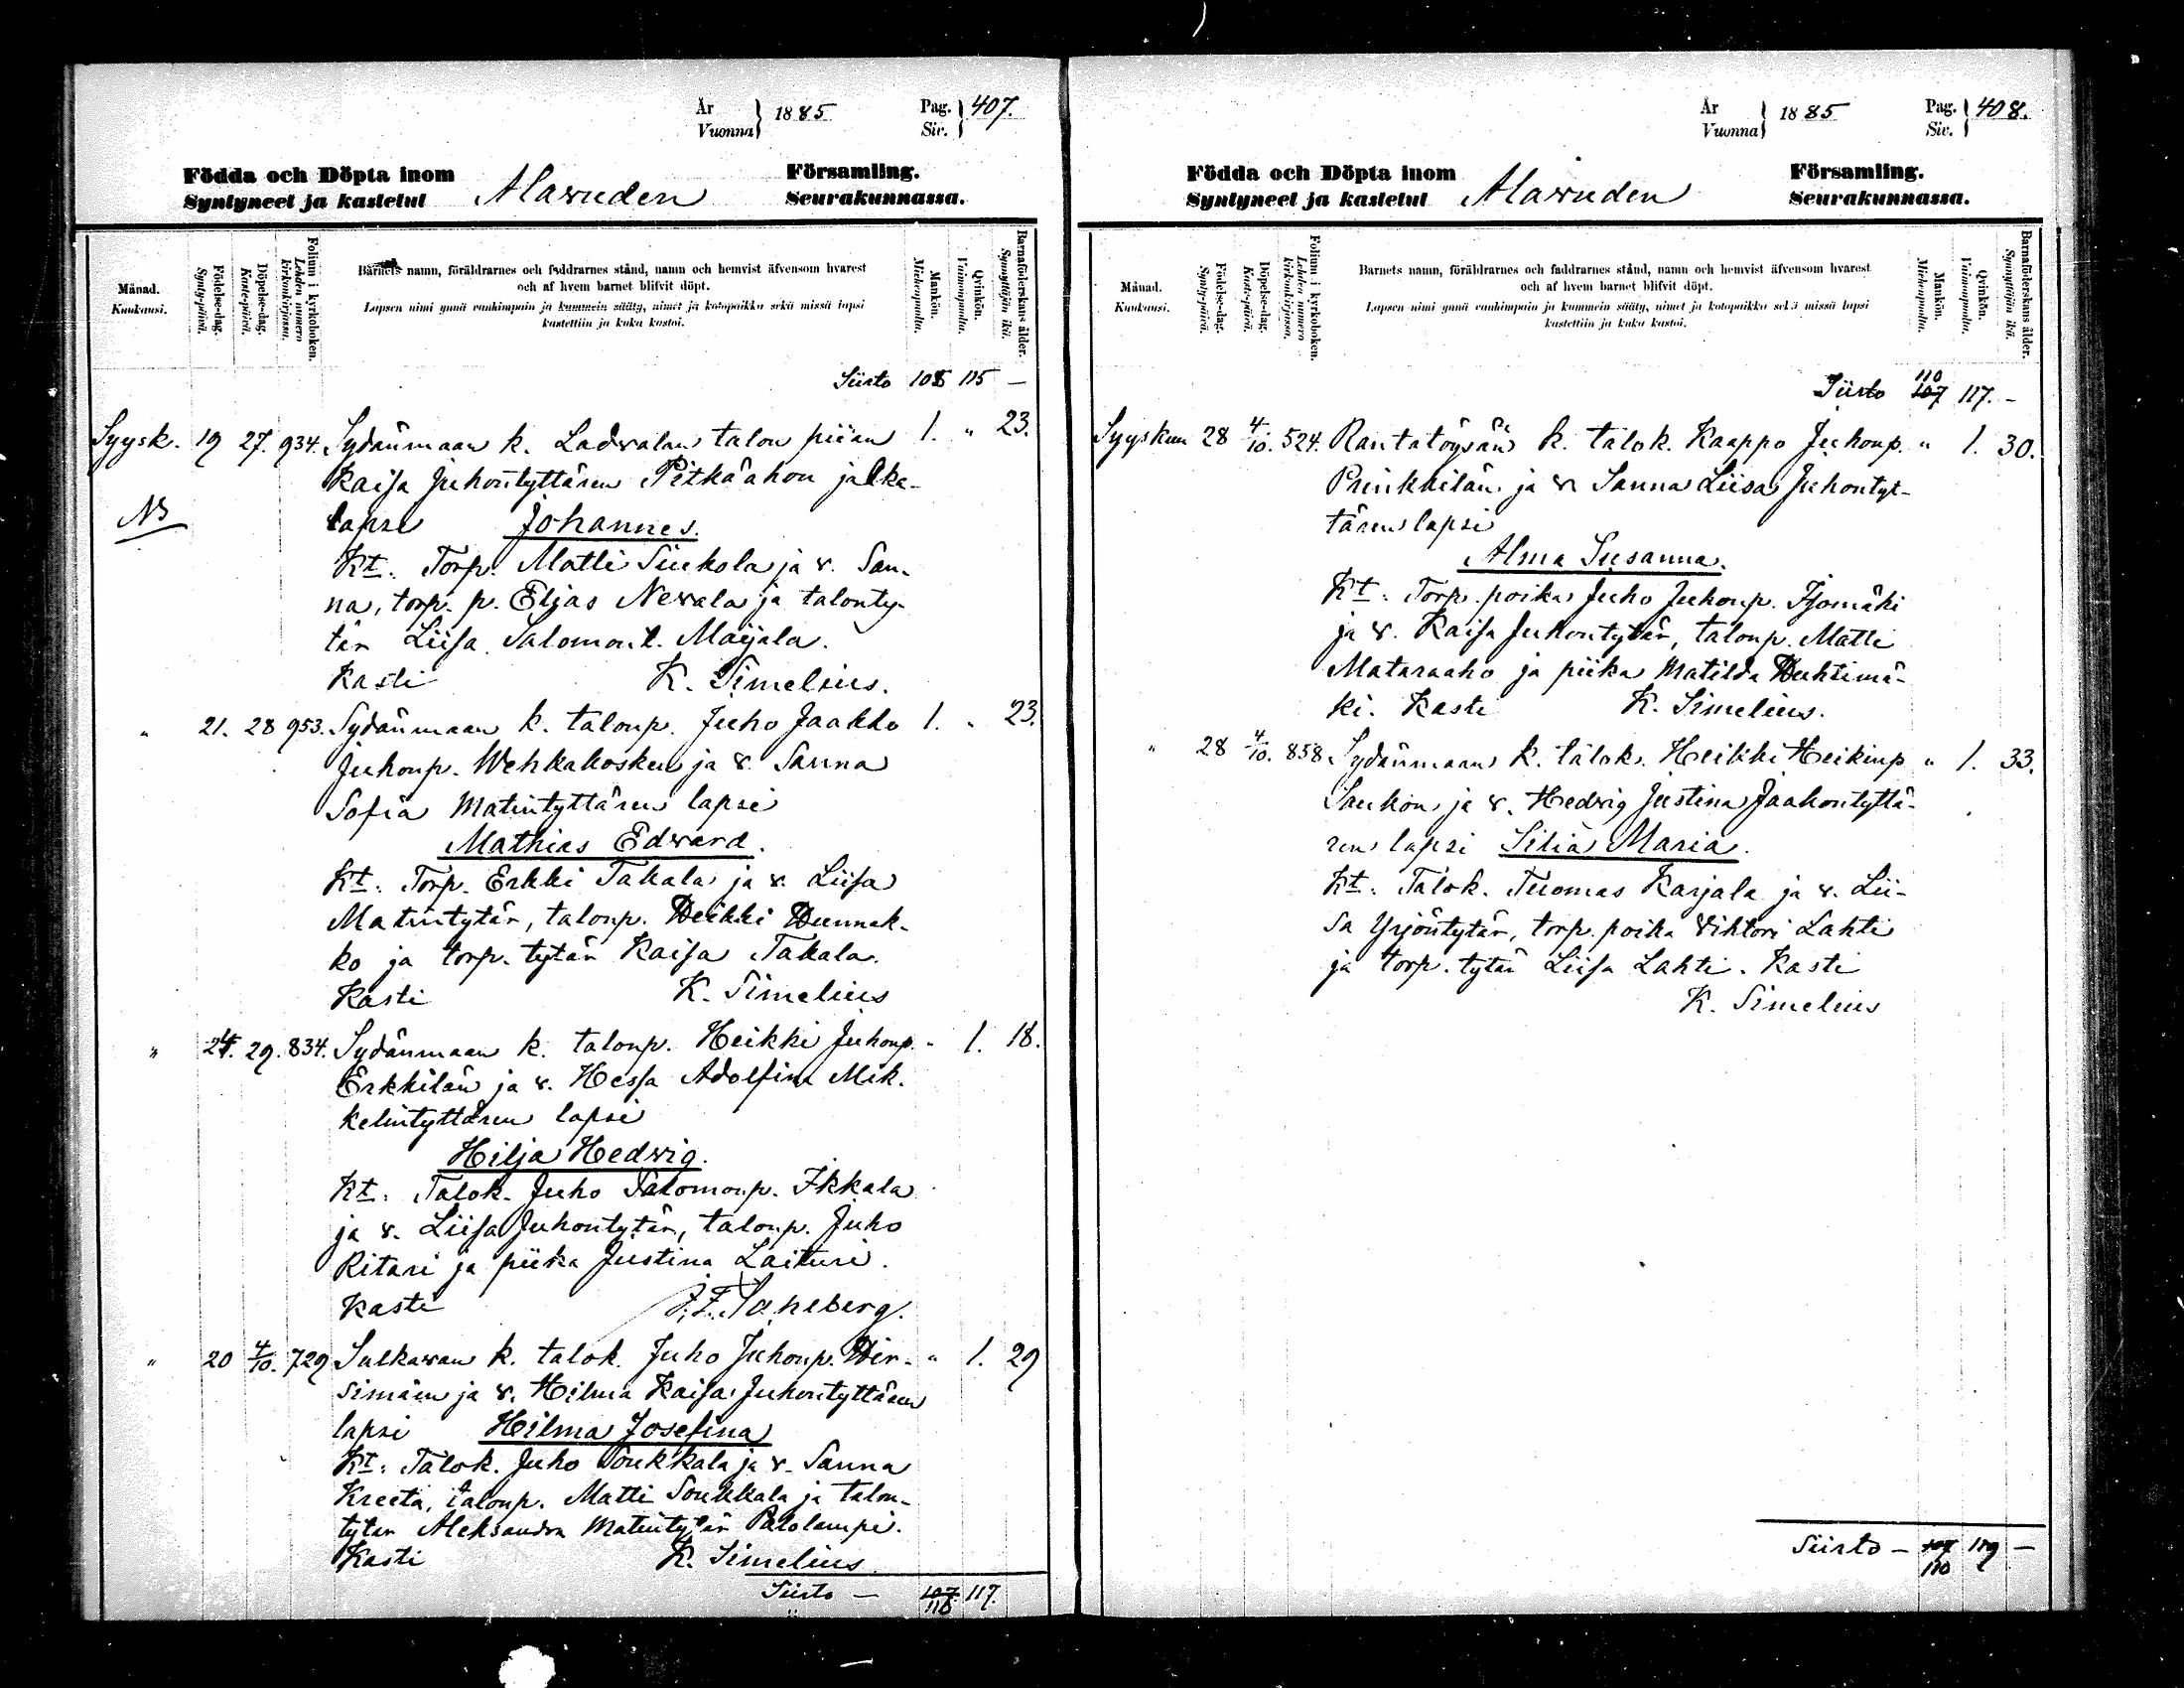 År
Vuonna } 1885 Pag.
Siv. } 407.
Födda och Döpta inom
Syntyneet ja kastetut Alavuden Församling.
Seurakunnassa.
Månad.
Kuukausi.
Födelse-dag.
Synty-päivä.
Döpelse-dag.
Kaste-päivä.
Folium i kyrkoboken.
Lehden numero
kirkonkirjassa.
Barnets namn, föräldrarnes och faddrarnes stånd, namn och hemvist äfvensom hvarest
och af hvem barnet blifvit döpt.
Lapsen nimi ynnä vanhimpain ja kummein sääty, nimet ja kotopaikka sekä missä lapsi
kastettiin ja kuka kastoi.
Mankön.
Miehenpuolta.
Qvinkön.
Vaimonpuolta.
Barnaföderskans ålder.
Synnyttäjän ikä.
Siirto 108 115 —
Syysk. 19 27. 934. Sydänmaan k. Ladvalan talon piian 1. " 23.
Kaisa Juhontyttären Pitkäahon jalka-
NB lapsi Johannes.
Kt. Torp. Matti Siukola ja v. San-
na, torp. p. Eljas Nevala ja talonty-
tär Liisa Salomont. Maijala.
Kasti K. Simelius.
" 21. 28 953. Sydänmaan k. talonp. Juho Jaakko 1. " 23.
Juhonp. Wehkakosken ja v. Sanna
Sofia Matintyttären lapsi
Mathias Edward.
Kt. Torp. Erkki Takala ja v. Liisa
Matintytär, talonp. Heikki Hunnak-
ko ja torp. tytär Kaisa Takala.
Kasti K. Simelius
" 24. 29. 834. Sydänmaan k. talonp. Heikki Juhonp. " 1. 18.
Erkkilän ja v. Hessa Adolfina Mik-
kelintyttären lapsi
Hilja Hedwig.
Kt. Talok. Juho Salomonp. Ikkala
ja v. Liisa Juhontytär, talonp. Juho
Ritari ja piika Justina Laituri.
Kasti
" 20 4/10. 729 Sulkavan k. talok. Juho Juhonp. Hir- " 1. 29
simäen ja v. Hilma Kaisa Juhontyttären
lapsi Hilma Josefina
Kt. Talok. Juho Soukkala ja v. Sanna
Kreeta, talonp. Matti Soukkala ja talon-
tytär Aleksandra Matintytär Palolampi.
Kasti K. Simelius
Siirto — 107 117.
110
År
Vuonna } 1885 Pag.
Siv. } 408.
Födda och Döpta inom
Syntyneet ja kastetut Alavuden Församling.
Seurakunnassa.
Månad.
Kuukausi.
Födelse-dag.
Synty-päivä.
Döpelse-dag.
Kaste-päivä.
Folium i kyrkoboken.
Lehden numero
kirkonkirjassa.
Barnets namn, föräldrarnes och faddrarnes stånd, namn och hemvist äfvensom hvarest
och af hvem barnet blifvit döpt.
Lapsen nimi ynnä vanhimpain ja kummein sääty, nimet ja kotopaikka sekä missä lapsi
kastettiin ja kuka kastoi.
Mankön.
Miehenpuolta.
Qvinkön.
Vaimonpuolta.
Barnaföderskans ålder.
Synnyttäjän ikä.
110
Siirto 107 117. —
Syyskuu 28 4/10. 524. Rantatöysän k. talok. Kaappo Juhonp. " 1. 30.
Prinkkilän ja v. Sanna Liisa Juhontyt-
tären lapsi
Alma Susanna.
Kt. Torp. poika Juho Juhonp. Isomäki
ja v. Kaisa Juhontytär, talonp. Matti
Mataraaho ja piika Matilda Huhtimä-
ki. Kasti K. Simelius.
" 28 4/10. 858 Sydänmaan k. talok. Heikki Heikinp " 1. 33.
Saukon ja v. Hedvig Justina Jaakontyttä-
ren lapsi Silia Maria.
Kt. Talok. Tuomas Karjala ja v. Lii-
sa Yrjöntytär, torp. poika Vihtori Lahti
ja torp. tytär Liisa Lahti. Kasti
K. Simelius
Siirto — 107 119 —
110